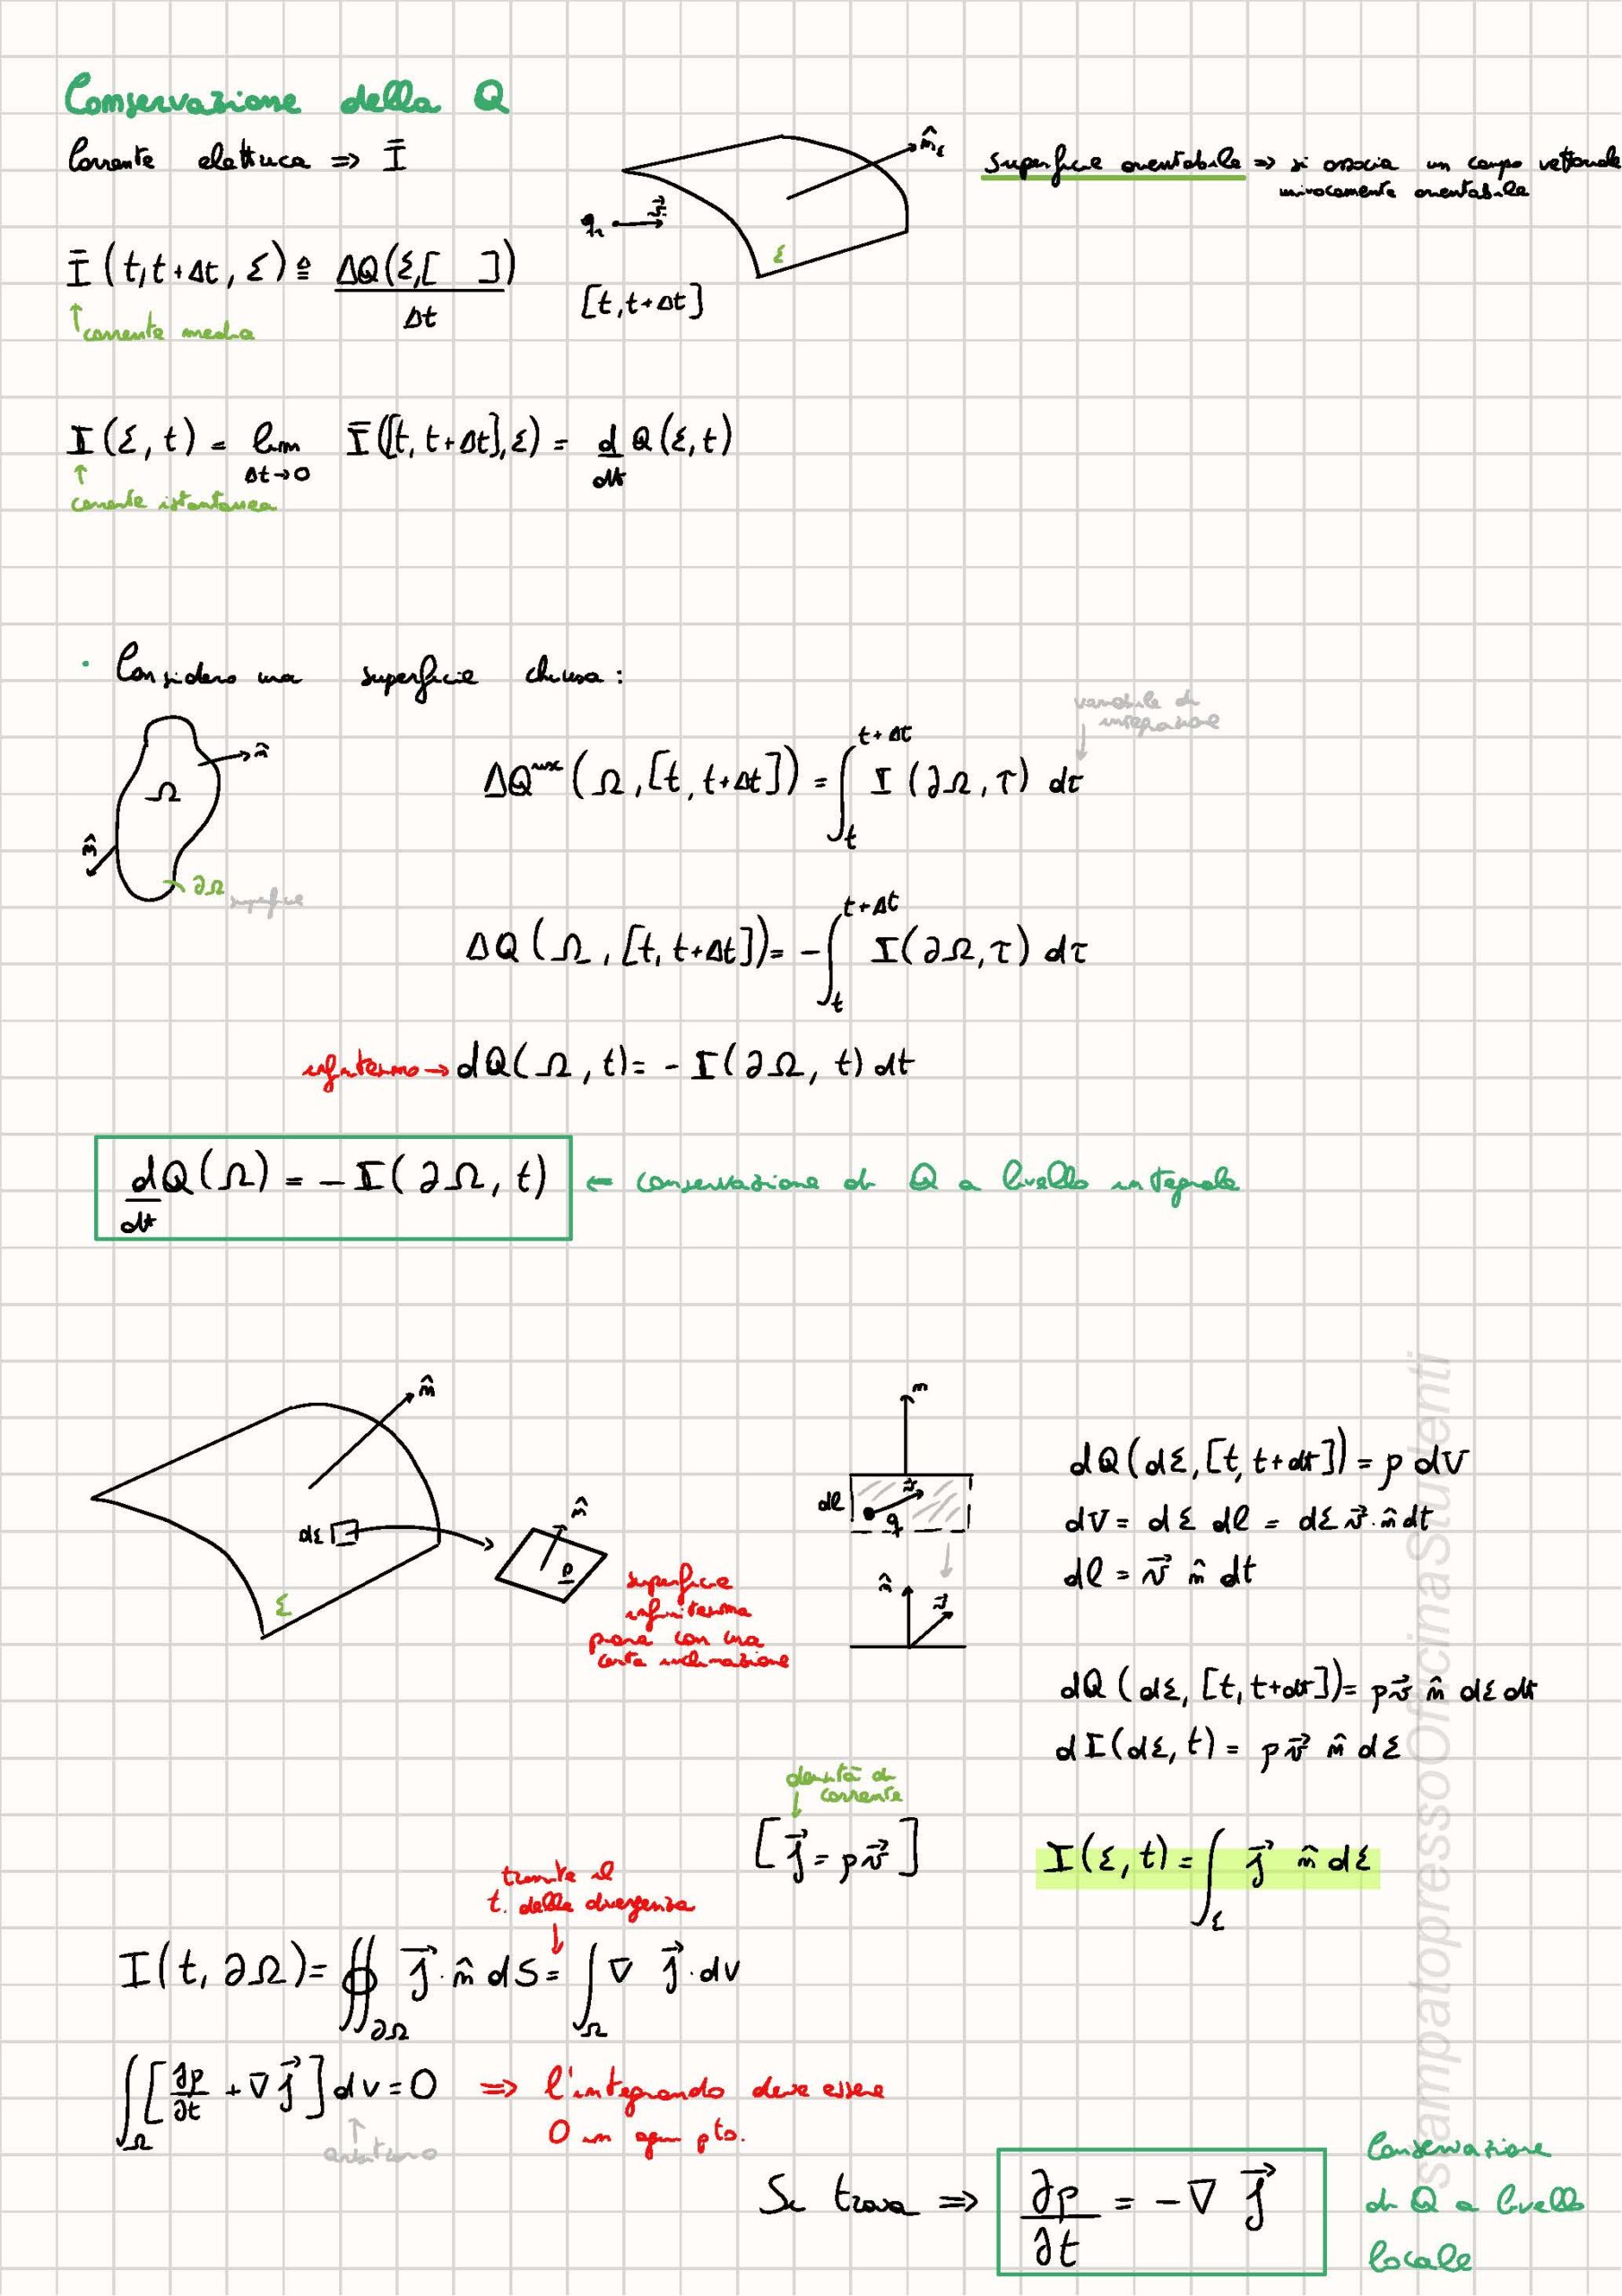 Conservazione della Q
Corrente elettrica ⇒ Ī
n̂_Σ
q₁ v⃗
Σ
[t, t+Δt]
Superficie orientabile ⇒ si associa un campo vettoriale
univocamente orientabile
Ī (t, t+Δt, Σ) ≜ ΔQ(Σ, [ ]) / Δt
↑ corrente media
I (Σ, t) = lim_{Δt→0} Ī ([t, t+Δt], Σ) = d/dt Q(Σ, t)
↑
corrente istantanea
· Considero una superficie chiusa:
n̂
Ω
n̂
∂Ω superficie
variabile di
integrazione
↓
ΔQ^(Ω, [t, t+Δt]) = ∫_t^{t+Δt} I (∂Ω, τ) dτ
ΔQ (Ω, [t, t+Δt]) = -∫_t^{t+Δt} I(∂Ω, τ) dτ
infinitesimo → dQ(Ω, t) = - I(∂Ω, t) dt
d/dt Q(Ω) = - I(∂Ω, t) ← conservazione di Q a livello integrale
n̂
dΣ
Σ
n̂
ρ
superficie
infinitesima
piana con una
certa inclinazione
n
dl
v⃗
q
n̂
v⃗
dQ(dΣ, [t, t+dt]) = ρ dV
dV = dΣ dl = dΣ v⃗·n̂ dt
dl = v⃗ n̂ dt
dQ (dΣ, [t, t+dt]) = ρv⃗ n̂ dΣ dt
dI(dΣ, t) = ρv⃗ n̂ dΣ
densità di
↓ corrente
[j⃗ = ρv⃗]
I(Σ, t) = ∫_Σ j⃗ n̂ dΣ
tramite il
t. della divergenza
↓
I(t, ∂Ω) = ∯_{∂Ω} j⃗·n̂ dS = ∫_Ω ∇ j⃗·dV
∫_Ω [∂ρ/∂t + ∇ j⃗] dV = 0 ⇒ l'integrando deve essere
0 in ogni pto.
↑
arbitrario
Si trova ⇒ ∂ρ/∂t = -∇ j⃗
Conservazione
di Q a livello
locale
stampatopressoOfficinaStudenti